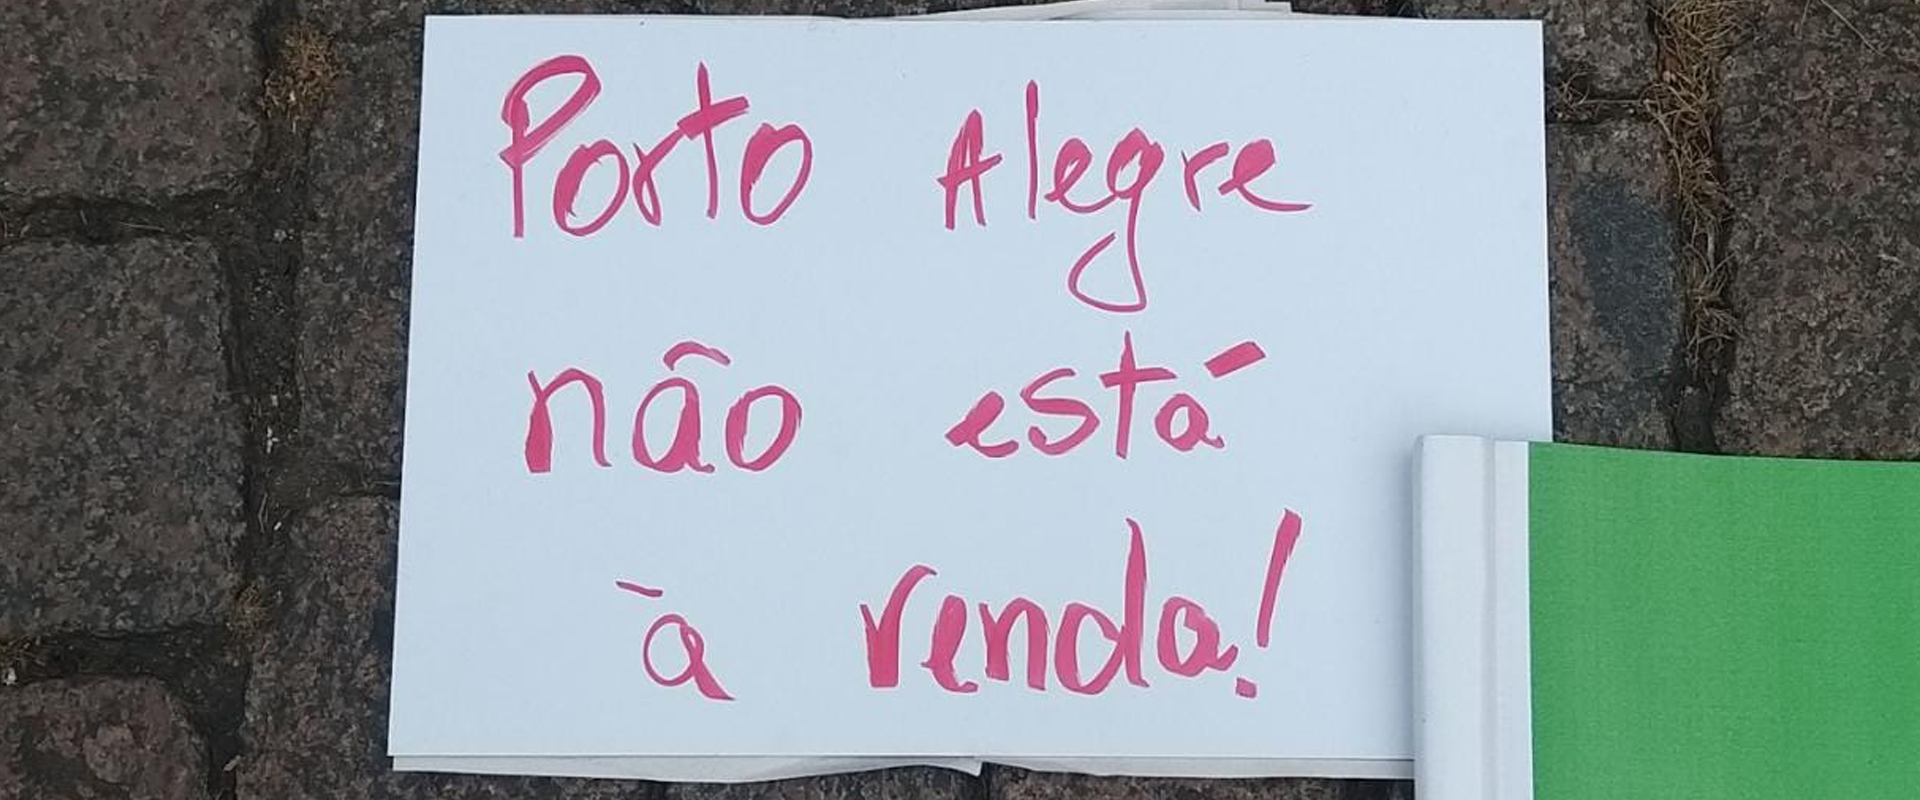 Porto Alegre
não está
à venda!